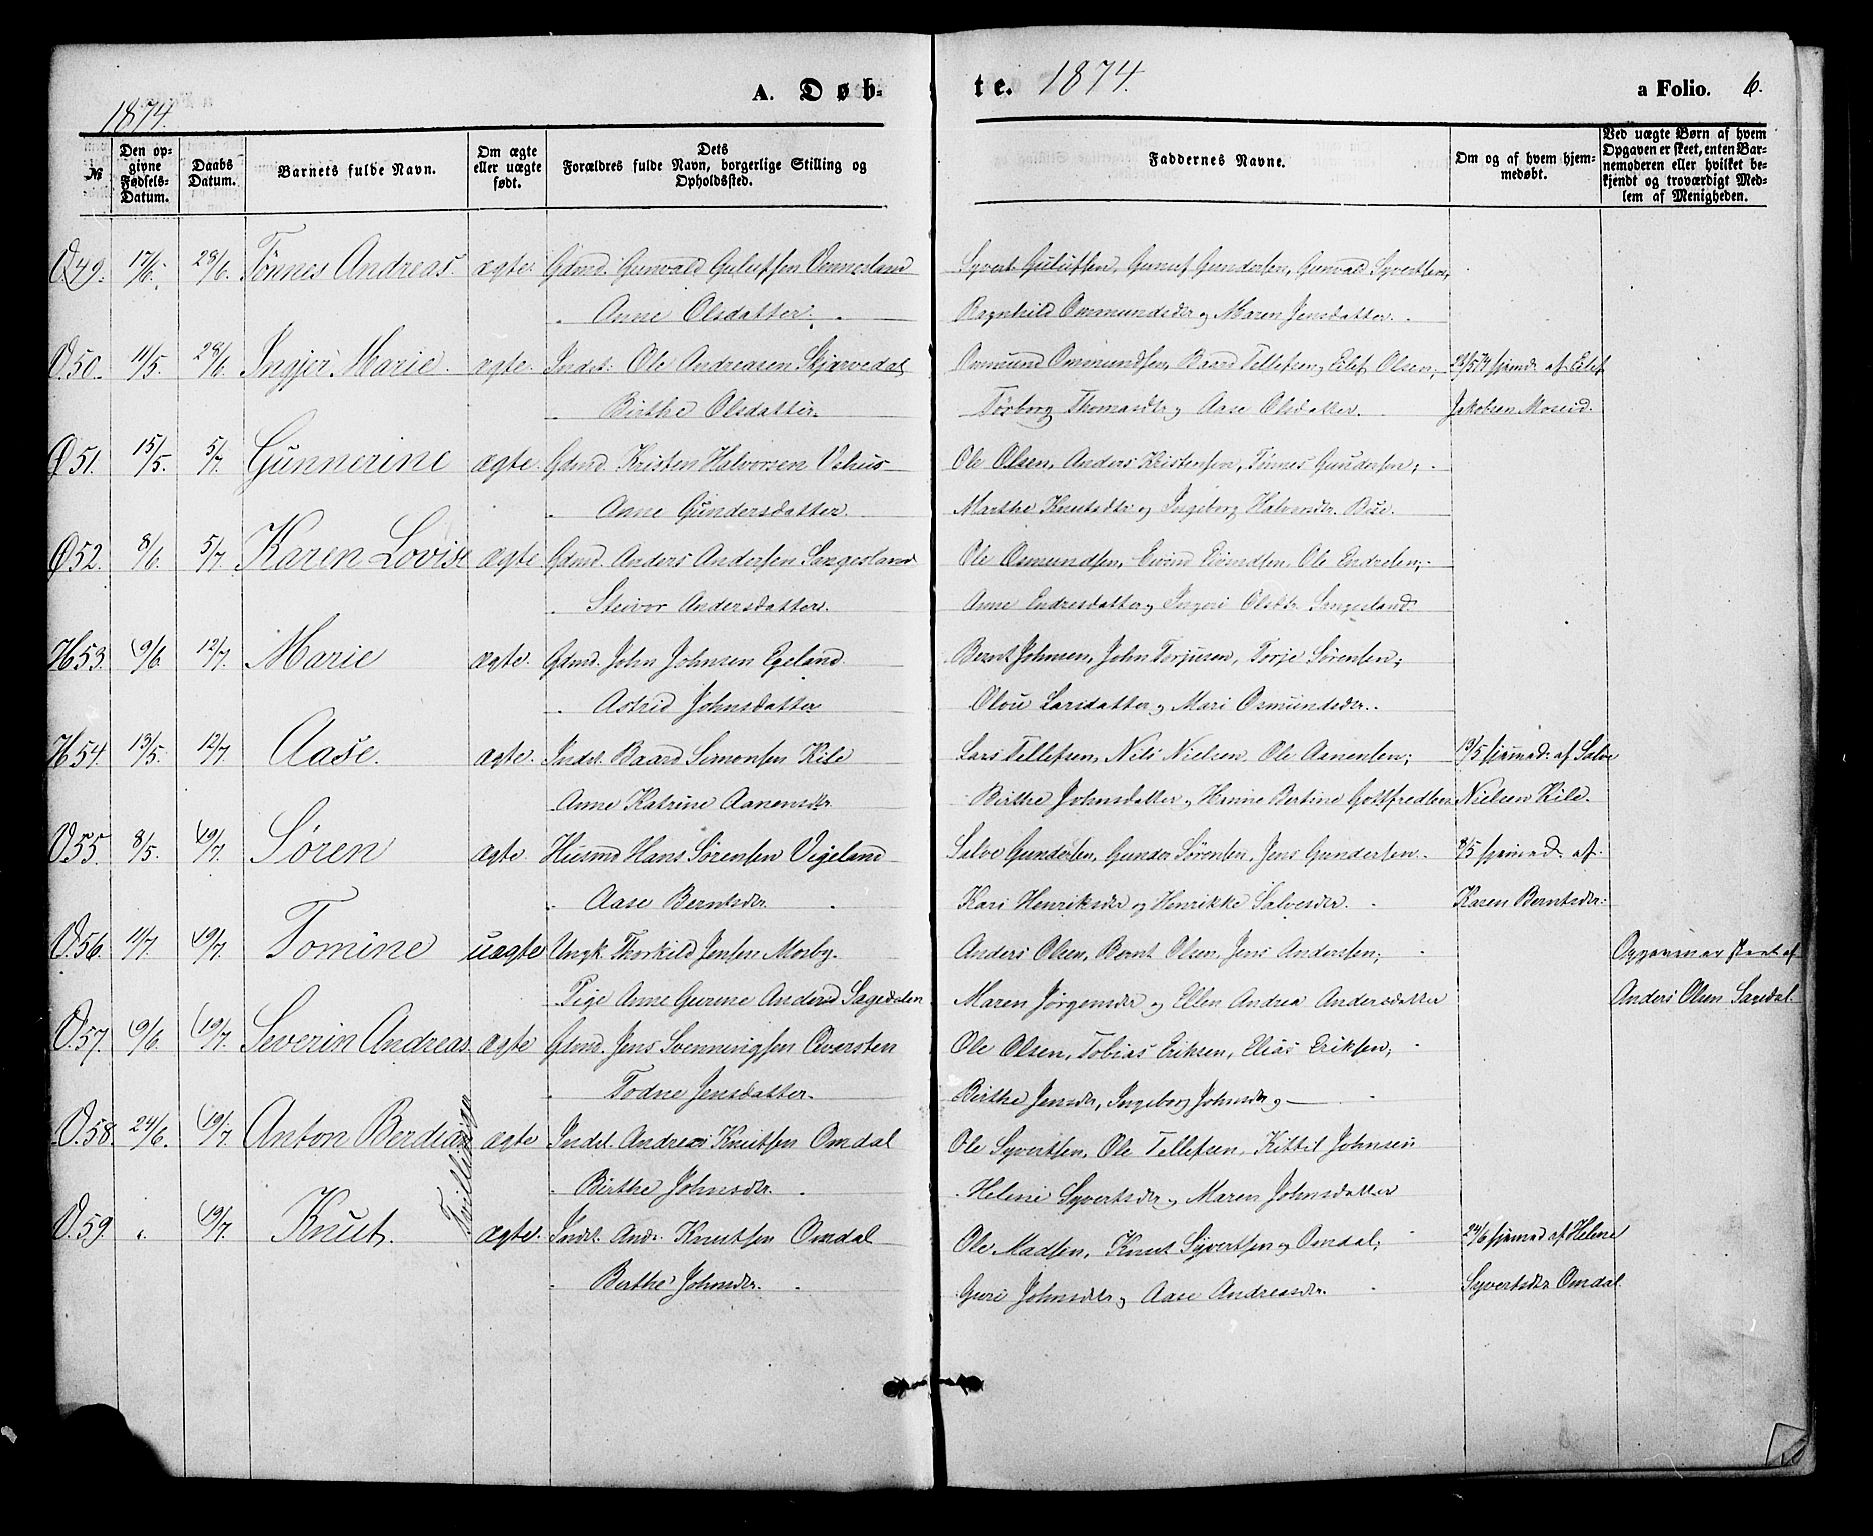 1874.
A. Døb-
te. 1874.
a Folio. 6.
№
Den op-
givne
Fødsels-
Datum.
Daabs
Datum.
Barnets fulde Navn.
Om ægte
eller uægte
født.
Dets
Forældres fulde Navn, borgerlige Stilling og
Opholdssted.
Faddernes Navne.
Om og af hvem hjem-
medøbt.
Ved uægte Børn af hvem
Opgaven er skeet, enten Bar-
nemoderen eller hvilket be-
kjendt og troværdigt Med-
lem af Menigheden.
49. 17/6. 28/6. Tønnes Andreas. ægte. Gdmd. Gunvald Gulufsen Vennesland Syvert Gulufsen, Gunuf Gundersen, Gunvald Syvertsen,
" Anne Olsdatter. " Ragnhild Ommundsdr og Maren Jensdatter.
V.50. 11/5. 28/6. Ingjer Marie. ægte. Indst. Ole Andreasen Skjævedal Ommund Ommundsen, Baard Tellefsen, Eilef Olsen; 24/5 74 hjemd. af Eilef
" Birthe Olsdatter. Torborg Thomasdtr og Aase Olsdatter. Jakobsen Moseid.
Ø51. 15/5. 5/7. Gunnerine ægte Gdmd. Kristen Halvorsen Vehus Ole Olsen, Anders Kristensen, Tønnes Gundersen;
" Anne Gundersdatter. Marthe Knutsdtr og Ingeborg Halvorsdr. Bue.
Ø52. 8/6. 5/7. Karen Lovise ægte Gdmd. Anders Andersen Sangesland Ole Osmundsen, Eivind Eivindsen, Ole Endresen;
" Steivor Andersdatter. Anne Endresdatter og Ingeri Olsdtr. Sangesland.
H53. 9/6. 12/7. Marie ægte. Gdmd. John Johnsen Egeland. Bernt Johnsen, John Torjusen, Torje Sørensen;
" Astrid Johnsdatter Olou Larsdatter og Mari Osmundsdr.
H54. 13/5. 12/7. Aase. ægte. Indst. Baard Simonsen Kile Lars Tellefsen, Nils Nielsen, Ole Aanensen; 13/5 hjemmed. af Salve
Anne Katrine Aanensdr Birthe Johnsdatter og Hanne Bertine Gottfredsen Nielsen Kile.
V.55. 8/5. 19/7. Søren ægte. Husmd Hans Sørensen Vigeland Salve Gundersen, Gunder Sørensen, Jens Gundersen. 8/5 hjemmed. af
" Aase Berntsdr " Kari Henriksdr og Henrikke Salvesdr. Karen Berntsdr.
V.56. 11/7. 19/7. Tomine uægte Ungk. Thorkild Jensen Mosby. Anders Olsen, Bernt Olsen, Jens Andersen; Opgaven er skeet af
Pige Anne Gurine Andersd Sagedalen Maren Jørgensdr og Ellen Andrea Andersdatter Anders Olsen Sagedal.
V.57. 9/6. 19/7. Severin Andreas. ægte Gdmd. Jens Svenningsen Øversten Ole Olsen, Tobias Eriksen, Elias Eriksen;
" Todne Jensdatter. Birthe Jensdr, Ingeborg Johnsdr og
V.58. 24/6. 19/7. Anton Berdinus ægte Indst. Andreas Knutsen Omdal Ole Syvertsen, Ole Tellefsen, Kittil Johnsen
Tvillinger
" Birthe Johnsdr. " Helene Syvertsdr og Maren Johnsdatter
V.59. " 19/7. Knut. ægte. Indst. Andr. Knutsen Omdal Ole Madsen, Knut Syvertsen og Omdal; 24/6 hjemmed af Helene
" Birthe Johnsdr. " Guri Johnsdtr og Aase Andreasdr. Syvertsdr Omdal.